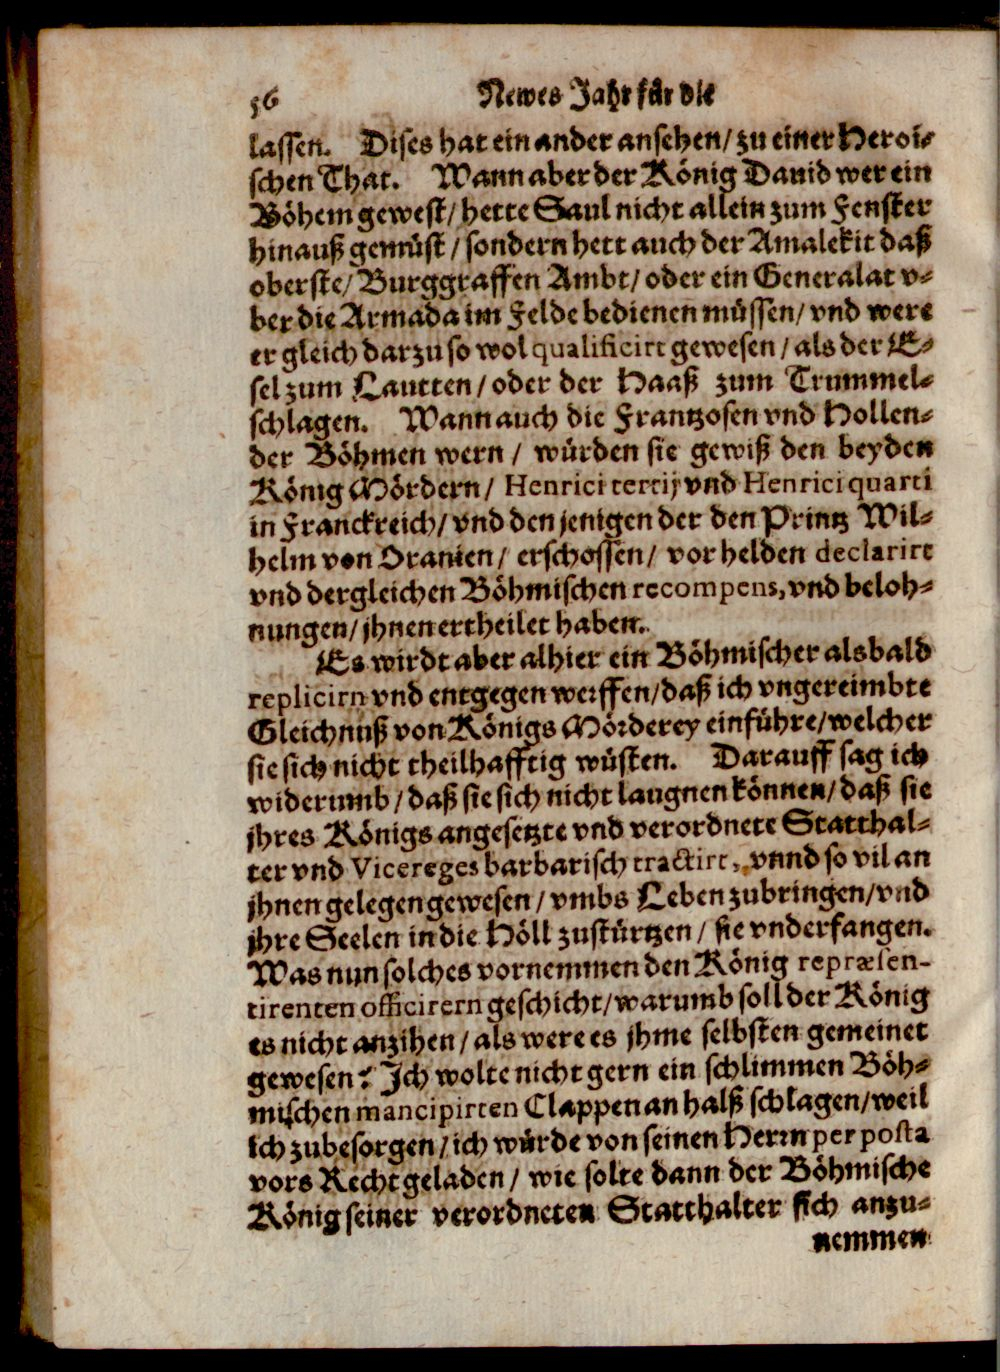 56 Newes Jahr für die
lassen. Dises hat ein ander ansehen/ zu einer Heroi-
schen That. Wann aber der König Dauid wer ein
Böhem gewest/ hette Saul nicht allein zum Fenster
hinauß gemüst/ sondern hett auch der Amalekit daß
oberste/ Burggraffen Ambt/ oder ein Generalat v-
ber die Armada im Felde bedienen müssen/ vnd were
er gleich darzu so wol qualificirt gewesen/ als der E-
sel zum Lautten/ oder der Haaß zum Trummel-
schlagen. Wann auch die Frantzosen vnd Hollen-
der Böhmen wern/ würden sie gewiß den beyden
König Mördern/ Henrici tertij vnd Henrici quarti
in Franckreich/ vnd den jenigen der den Printz Wil-
helm von Oranien/ erschossen/ vor helden declarirt
vnd dergleichen Böhmischen recompens, vnd beloh-
nungen/ jhnen ertheilet haben.
Es wirdt aber alhier ein Böhmischer alsbald
replicirn vnd entgegen werffen/ daß ich vngereimbte
Gleichnuß von Königs Mörderey einführe/ welcher
sie sich nicht theilhafftig wüsten. Darauff sag ich
widerumb/ daß sie sich nicht laugnen können/ daß sie
jhres Königs angesetzte vnd verordnete Statthal-
ter vnd Vicereges barbarisch tractirt, vnnd so vil an
jhnen gelegen gewesen/ vmbs Leben zubringen/ vnd
jhre Seelen in die Höll zustürtzen/ sie vnderfangen.
Was nun solches vornemmen den König repræsen-
tirenten officirern geschicht/ warumb soll der König
es nicht anzihen/ als were es jhme selbsten gemeinet
gewesen? Jch wolte nicht gern ein schlimmen Böh-
mischen mancipirten Clappen an halß schlagen/ weil
Ich zubesorgen/ ich würde von seinen Herrn per posta
vors Recht geladen/ wie solte dann der Böhmische
König seiner verordneten Statthalter sich anzu-
nemmen